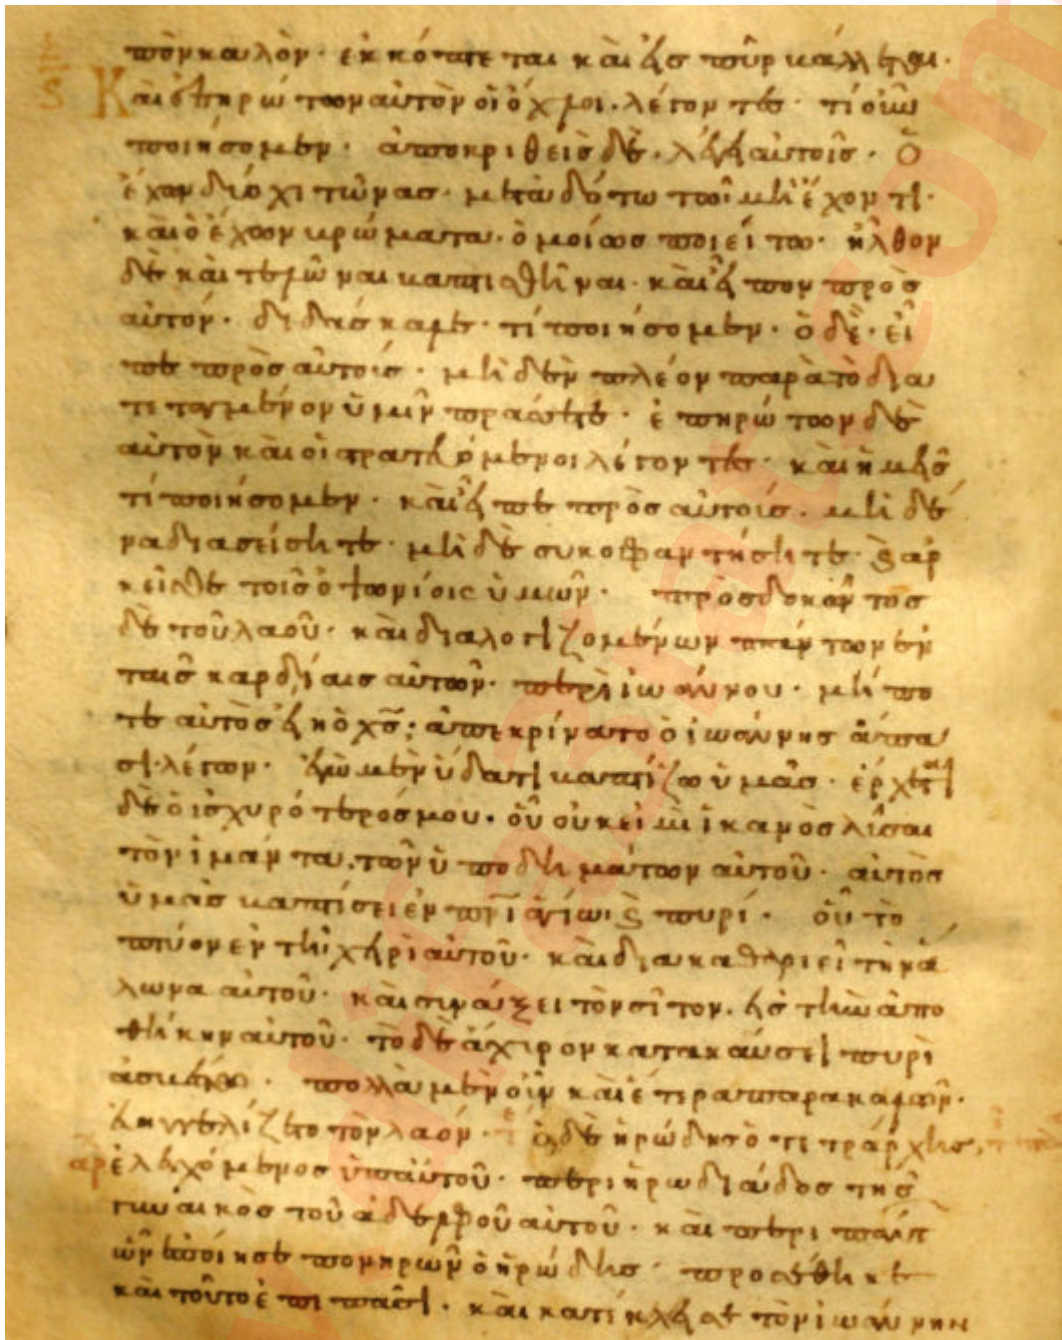 ποῦν καλὸν· ἐκκόπτεται καὶ εἰς πῦρ βάλλεται·
Καὶ ἐπηρώτων αὐτὸν οἱ ὄχλοι· λέγοντες· τί οὖν
ποιήσομεν· ἀποκριθεὶς δὲ· λέγει αὐτοῖς· Ὁ
ἔχων δύο χιτῶνας· μεταδότω τῶ μὴ ἔχοντι·
καὶ ὁ ἔχων βρώματα· ὁμοίως ποιείτω· ἦλθον
δὲ καὶ τελῶναι βαπτισθῆναι· καὶ εἶπον πρὸς
αὐτόν· διδάσκαλε· τί ποιήσομεν· ὁ δὲ· εἶ
πε πρὸς αὐτούς· μηδὲν πλέον παρὰ τὸ δια
τεταγμένον ὑμῖν πράσσετε· ἐπηρώτων δὲ
αὐτὸν καὶ οἱ στρατευόμενοι λέγοντες· καὶ ἡμεῖς
τί ποιήσομεν· καὶ εἶπε πρὸς αὐτούς· μηδέ
να διασείσητε· μηδὲ συκοφαντήσητε· ϗ ἀρ
κεῖσθε τοῖς ὀψωνίοις ὑμῶν· προσδοκῶντος
δὲ τοῦ λαοῦ· καὶ διαλογιζομένων πάντων ἐν
ταῖς καρδίαις αὐτῶν· περὶ ἰωάννου· μήπο
τε αὐτὸς εἴη ὁ χς· ἀπεκρίνατο ὁ ἰωάννης ἅπα
σι· λέγων· ἐγὼ μὲν ὕδατι βαπτίζω ὑμᾶς· ἔρχεται
δὲ ὁ ἰσχυρότερός μου· οὗ οὐκ εἰμὶ ἱκανὸς λῦσαι
τὸν ἱμάντα· τῶν ὑποδημάτων αὐτοῦ· αὐτὸς
ὑμᾶς βαπτίσει ἐν πνι ἁγίωι ϗ πυρί· οὗ τὸ
πτύον ἐν τῆ χειρὶ αὐτοῦ· καὶ διακαθαριεῖ τὴν ἅ
λωνα αὐτοῦ· καὶ συνάξει τὸν σῖτον· εἰς τὴν ἀπο
θήκην αὐτοῦ· τὸ δὲ ἄχυρον κατακαύσει πυρὶ
ἀσβέστω· πολλὰ μὲν οὖν καὶ ἕτερα παρακαλῶν·
εὐηγγελίζετο τὸν λαόν· ὁ δὲ ἡρώδης ὁ τετράρχης,
ἐλεγχόμενος ὑπ' αὐτοῦ· περὶ ἡρωδιάδος τῆς
γυναικὸς τοῦ ἀδελφοῦ αὐτοῦ· καὶ περὶ πάντ
ὧν ἐποίησε πονηρῶν ὁ ἡρώδης· προσέθηκε
καὶ τοῦτο ἐπὶ πᾶσι· καὶ κατέκλεισε τὸν ἰωάννην